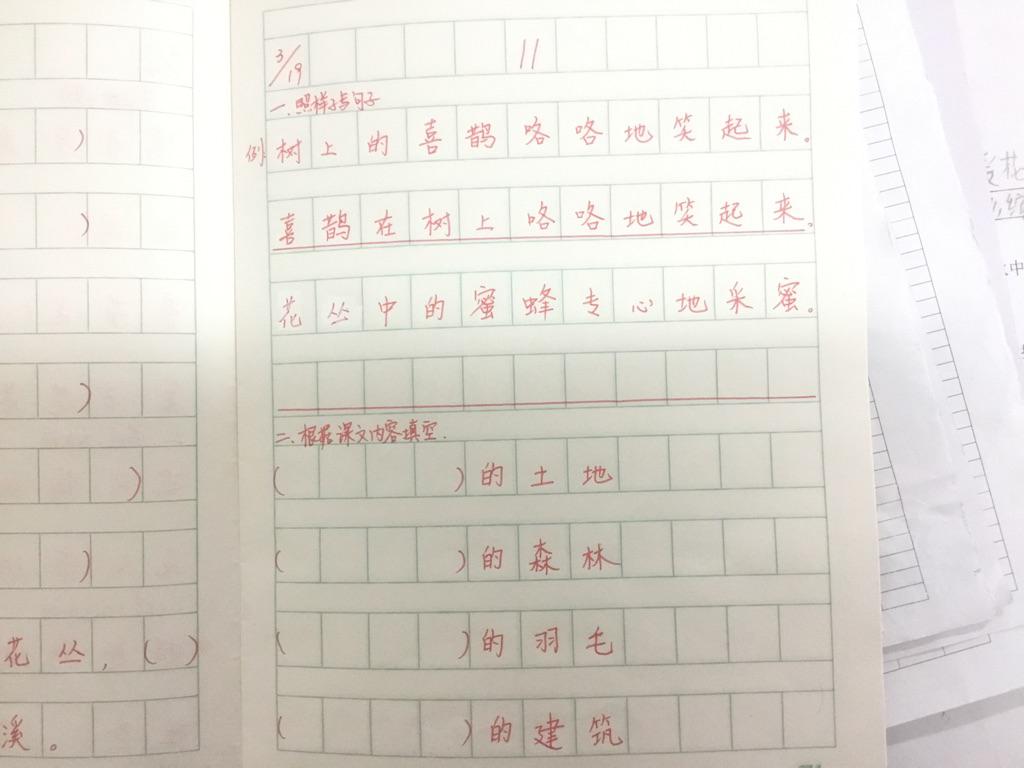 )
)
)
)
)
花丛,( )
溪。
3/19 11
一.照样子写句子
例:树上的喜鹊咯咯地笑起来。
喜鹊在树上咯咯地笑起来。
花丛中的蜜蜂专心地采蜜。
二.根据课文内容填空.
( )的土地
( )的森林
( )的羽毛
( )的建筑